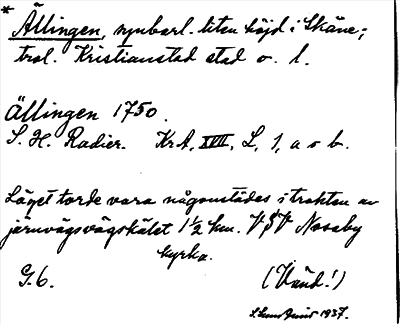 * Ällingen, synbarl. liten höjd i Skåne;
trol. Kristianstad stad o. l.
Ällingen 1750.
S. H. Radier. KrA, XVII, L, 1, a o b.
Läget torde vara någonstädes i trakten av
järnvägsvägskälet 1½ km. V Nosaby
kyrka.
G. 6. (Vänd!)
1937.